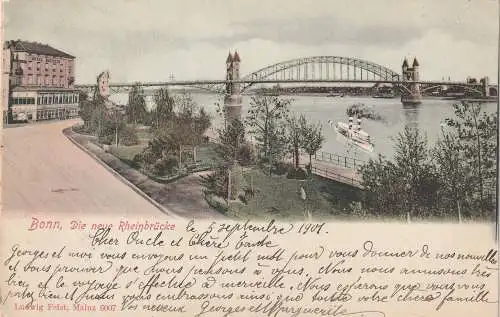 Bonn, Die neue Rheinbrücke
le 5 septembre 1901.
Cher Oncle et Chère Tante
Georges et moi vous envoyons un petit mot pour vous donner de nos nouvelles
et vous prouver que nous pensons à vous. Nous nous amusons très
bien et le voyage s'effectue à merveille. Nous espérons que vous
bien et nous vous embrassons ainsi que toute votre chère famille
Vos neveux Georges et Marguerite
Ludwig Feist, Mainz 6007